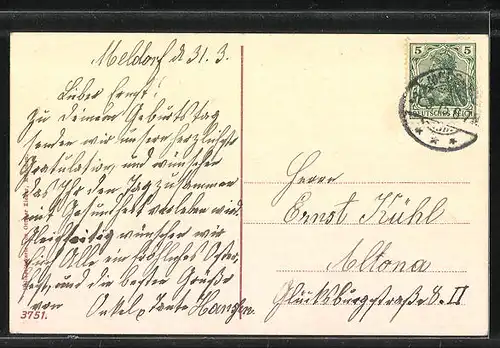 Meldorf d 31. 3.
Lieber Ernst!
Zu deinem Geburtstag
senden wir unsere herzlichste
Gratulation, und wünschen
das Ihr den Tag zusammen
mit Gesundheit verleben wird
Gleichzeitig wünschen wir
Euch Alle ein fröhliches Oster-
fest, und die besten Grüße
von Onkel, Tante Hansen.
3751.
5 5
DEUTSCHES REICH
Herrn
Ernst Kühl
Altona
Glücksburgstraße 8. II